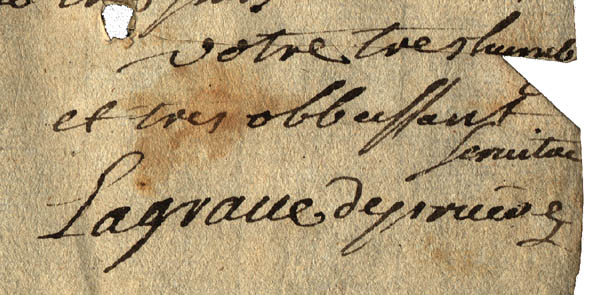 votre tres humb
et tres obbeissant
seruite
Lagraue